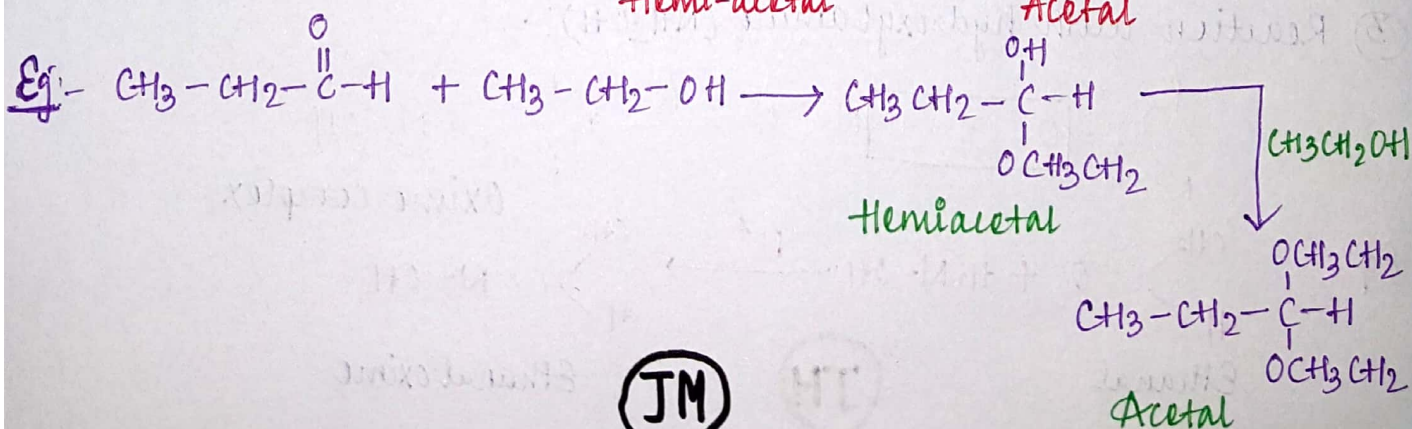 Hemi-acetal Acetal
O
Eg:- CH3-CH2-C-H + CH3-CH2-OH → CH3CH2-C-H
OH
OCH3CH2
CH3CH2OH
Hemiacetal
OCH3CH2
CH3-CH2-C-H
OCH3CH2
Acetal
JM